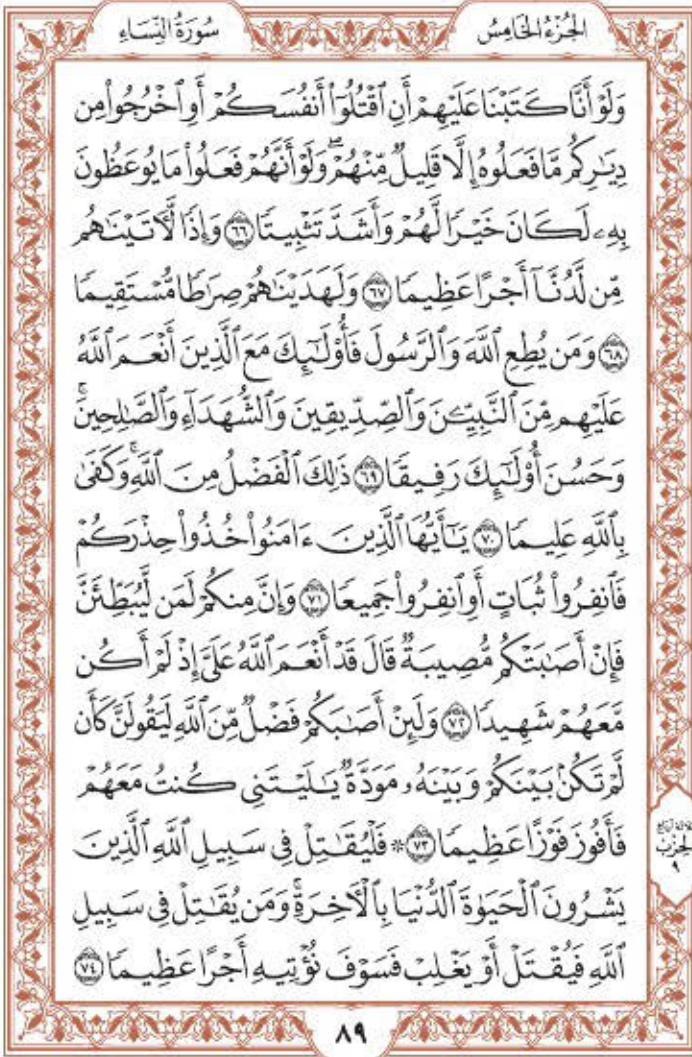 الجُزْءُ الخَامِسُ
سُورَةُ النِّسَاءِ
وَلَوْ أَنَّا كَتَبْنَا عَلَيْهِمْ أَنِ ٱقْتُلُوٓاْ أَنفُسَكُمْ أَوِ ٱخْرُجُواْ مِن
دِيَٰرِكُم مَّا فَعَلُوهُ إِلَّا قَلِيلٌ مِّنْهُمْۖ وَلَوْ أَنَّهُمْ فَعَلُواْ مَا يُوعَظُونَ
بِهِۦ لَكَانَ خَيْرًا لَّهُمْ وَأَشَدَّ تَثْبِيتًا ٦٦ وَإِذًا لَّأٓتَيْنَٰهُم
مِّن لَّدُنَّآ أَجْرًا عَظِيمًا ٦٧ وَلَهَدَيْنَٰهُمْ صِرَٰطًا مُّسْتَقِيمًا
٦٨ وَمَن يُطِعِ ٱللَّهَ وَٱلرَّسُولَ فَأُوْلَٰٓئِكَ مَعَ ٱلَّذِينَ أَنْعَمَ ٱللَّهُ
عَلَيْهِم مِّنَ ٱلنَّبِيِّـۧنَ وَٱلصِّدِّيقِينَ وَٱلشُّهَدَآءِ وَٱلصَّٰلِحِينَۚ
وَحَسُنَ أُوْلَٰٓئِكَ رَفِيقًا ٦٩ ذَٰلِكَ ٱلْفَضْلُ مِنَ ٱللَّهِۚ وَكَفَىٰ
بِٱللَّهِ عَلِيمًا ٧٠ يَٰٓأَيُّهَا ٱلَّذِينَ ءَامَنُواْ خُذُواْ حِذْرَكُمْ
فَٱنفِرُواْ ثُبَاتٍ أَوِ ٱنفِرُواْ جَمِيعًا ٧١ وَإِنَّ مِنكُمْ لَمَن لَّيُبَطِّئَنَّ
فَإِنْ أَصَٰبَتْكُم مُّصِيبَةٌ قَالَ قَدْ أَنْعَمَ ٱللَّهُ عَلَىَّ إِذْ لَمْ أَكُن
مَّعَهُمْ شَهِيدًا ٧٢ وَلَئِنْ أَصَٰبَكُمْ فَضْلٌ مِّنَ ٱللَّهِ لَيَقُولَنَّ كَأَن
لَّمْ تَكُنۢ بَيْنَكُمْ وَبَيْنَهُۥ مَوَدَّةٌ يَٰلَيْتَنِى كُنتُ مَعَهُمْ
فَأَفُوزَ فَوْزًا عَظِيمًا ٧٣ ۞ فَلْيُقَٰتِلْ فِى سَبِيلِ ٱللَّهِ ٱلَّذِينَ
يَشْرُونَ ٱلْحَيَوٰةَ ٱلدُّنْيَا بِٱلْأٓخِرَةِۚ وَمَن يُقَٰتِلْ فِى سَبِيلِ
ٱللَّهِ فَيُقْتَلْ أَوْ يَغْلِبْ فَسَوْفَ نُؤْتِيهِ أَجْرًا عَظِيمًا ٧٤
الحِزْب
٩
٨٩